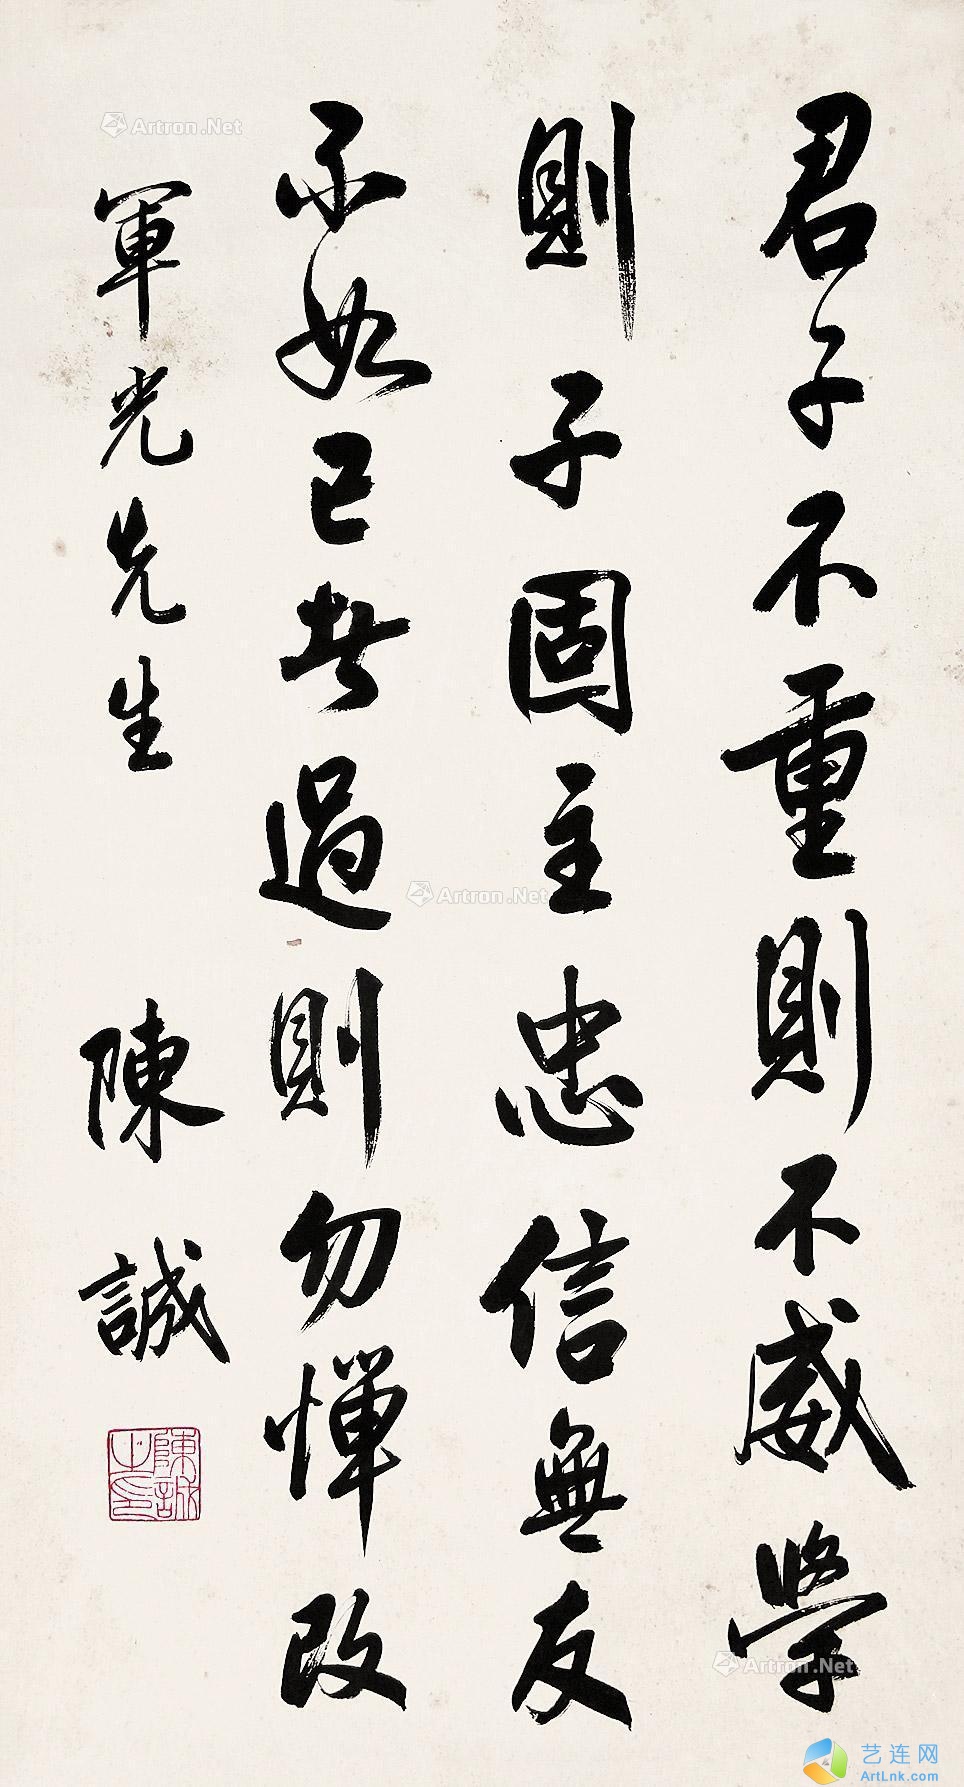 君子不重則不威學
則子固主忠信無友
不如己者過則勿憚改
軍光先生 陳誠
陳誠之印
Artron.Net
Artron.Net
Artron.Net
艺连网
ArtLnk.com